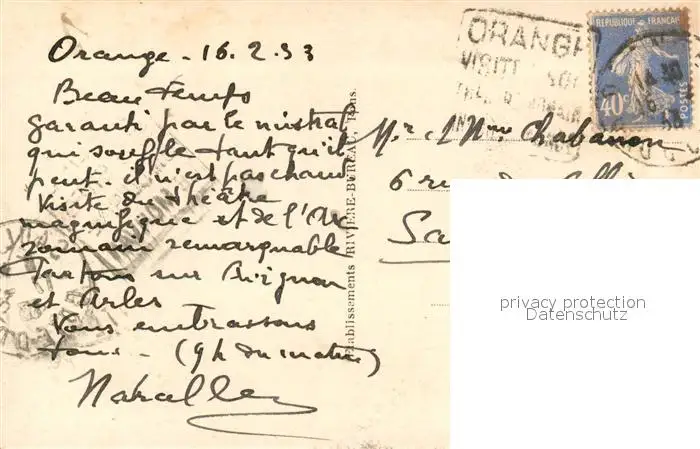 Orange - 16.2.33
Beau temps
garanti par le mistral
qui souffle tant qu'il
peut. il n'est pas chaud
Visite du théâtre
magnifique et de l'Arc
romain remarquable
Partons sur Avignon
et Arles
Vous embrassons
tous - (9h du matin)
ORANGE
VISITE
REPUBLIQUE FRANÇAISE
40c
POSTES
Mr & Mme Chabanon
6 rue
Sa
Etablissements RIVIÈRE-BUREAU,
privacy protection
Datenschutz